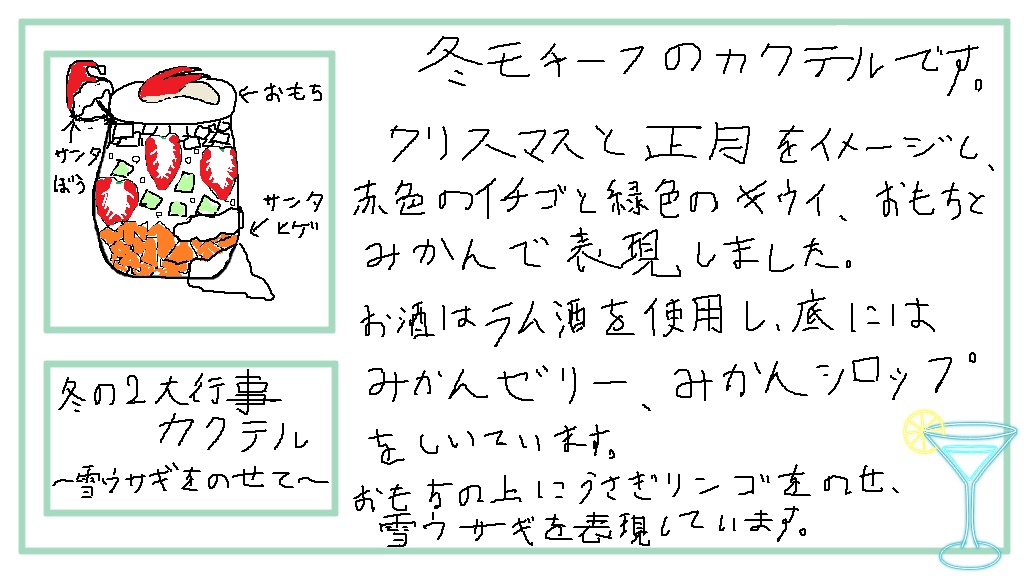 冬モチーフのカクテルです。
クリスマスと正月をイメージし、
赤色のイチゴと緑色のキウイ、おもちと
みかんで表現しました。
お酒はラム酒を使用し、底には
みかんゼリー、みかんシロップ
をしいています。
おもちの上にうさぎリンゴをのせ、
雪ウサギを表現しています。
←おもち
サンタ
ぼう
サンタ
ヒゲ
冬の2大行事
カクテル
～雪ウサギをのせて～